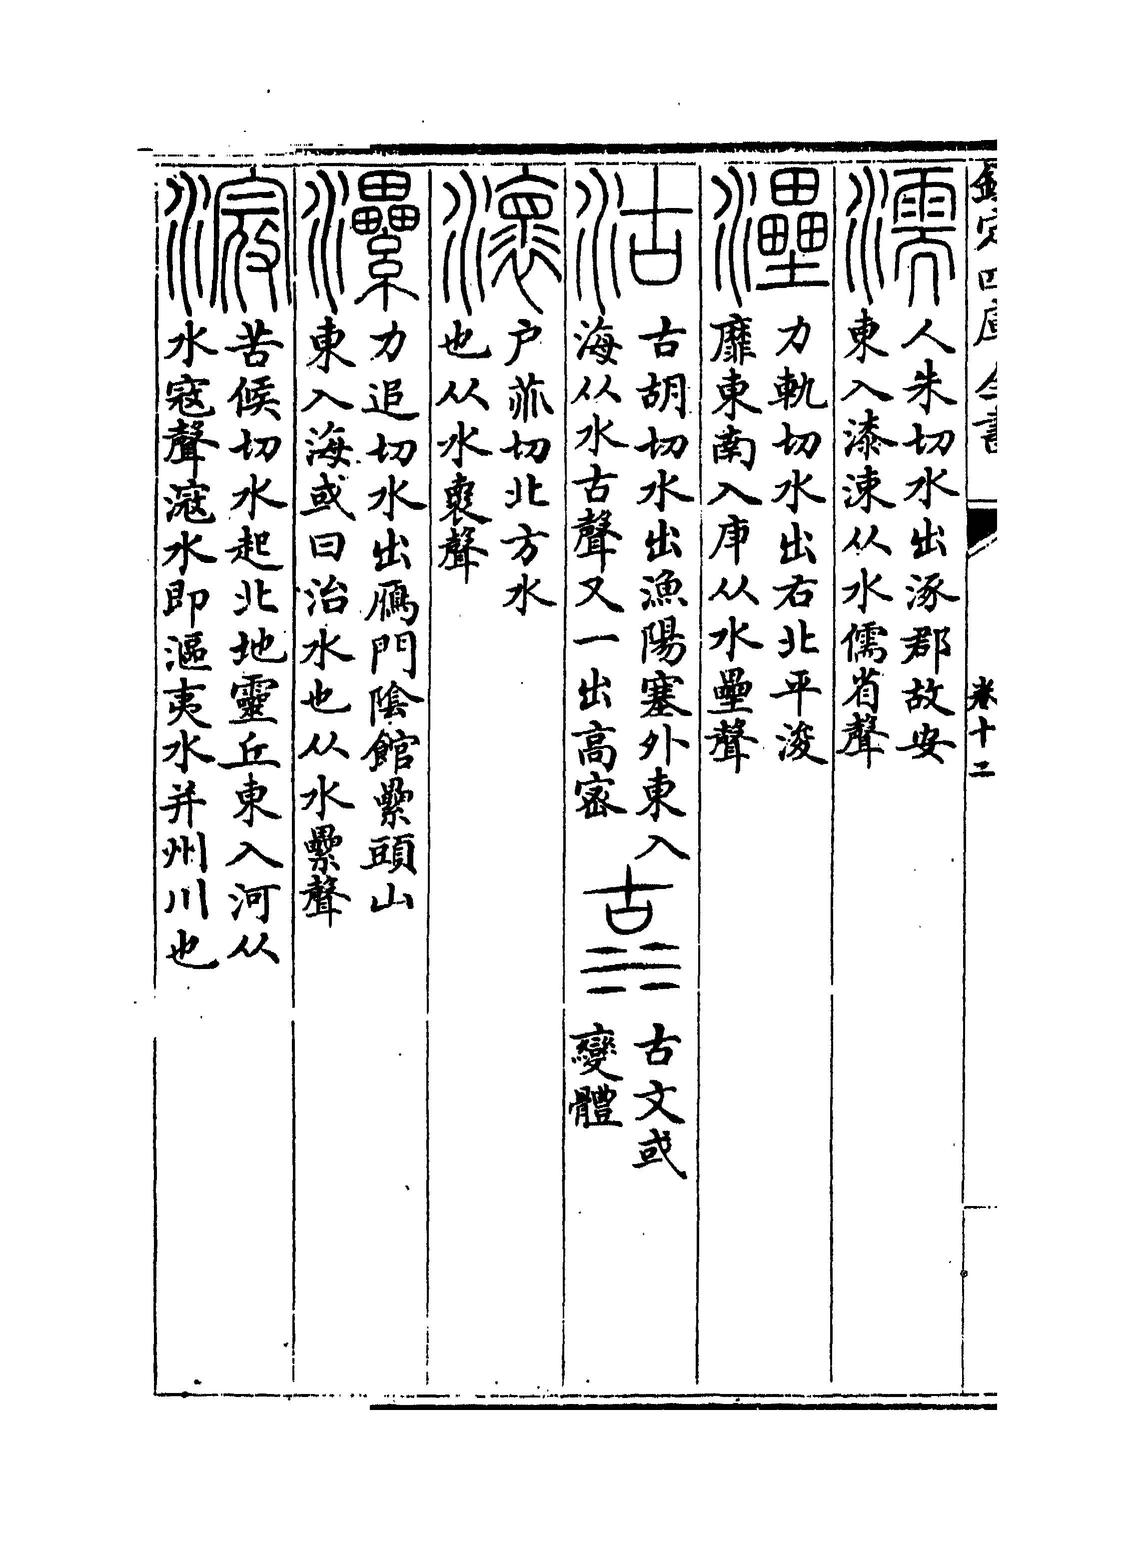 欽定四庫全書
卷十二
濡
人朱切水出涿郡故安
東入漆涑从水儒省聲
灅
力軌切水出右北平浚
靡東南入庳从水壘聲
沽
古胡切水出漁陽塞外東入
海从水古聲又一出高密
古文或
變體
瀤
户乖切北方水
也从水褱聲
灅
力追切水出鴈門隂館纍頭山
東入海或曰治水也从水纍聲
滱
苦候切水起北地靈丘東入河从
水寇聲滱水即漚夷水并州川也